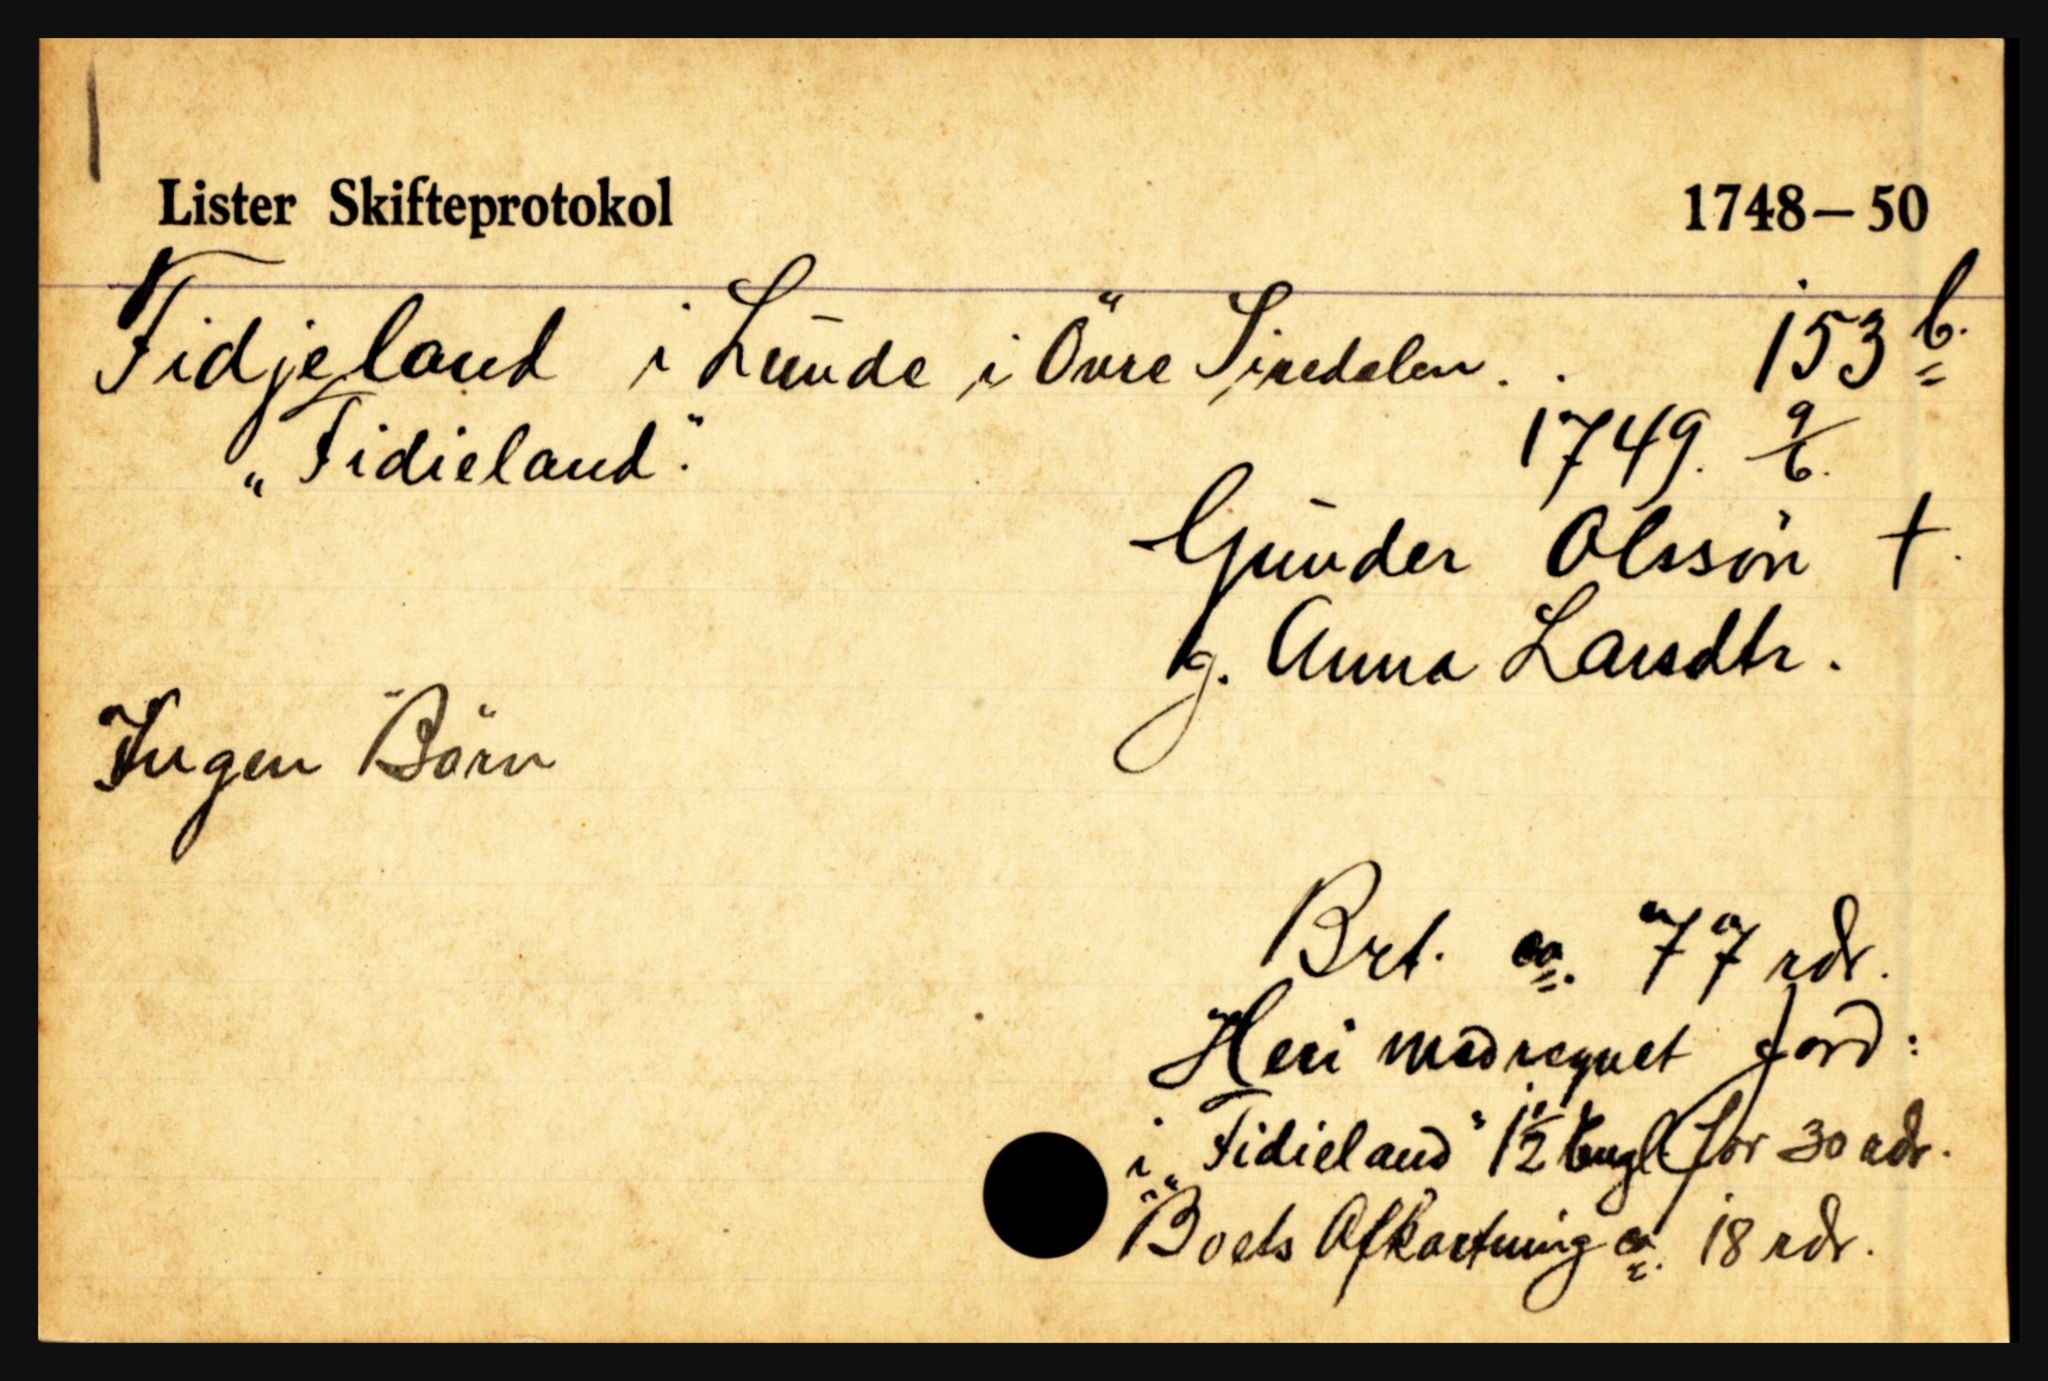 Lister Skifteprotokol 1748–50
Fidjeland i Lunde i Øvre Siredalen. 153 b.
"Fidieland". 1749. 9/6.
Gunder Olssøn †.
g. Anna Larsdtr.
Ingen Børn
Brt. ca. 77 rdr.
Heri medregnet Jord:
i "Fidieland" 1 1/2 Engl. for 30 rdr.
Boets Afkortning ca. 18 rdr.